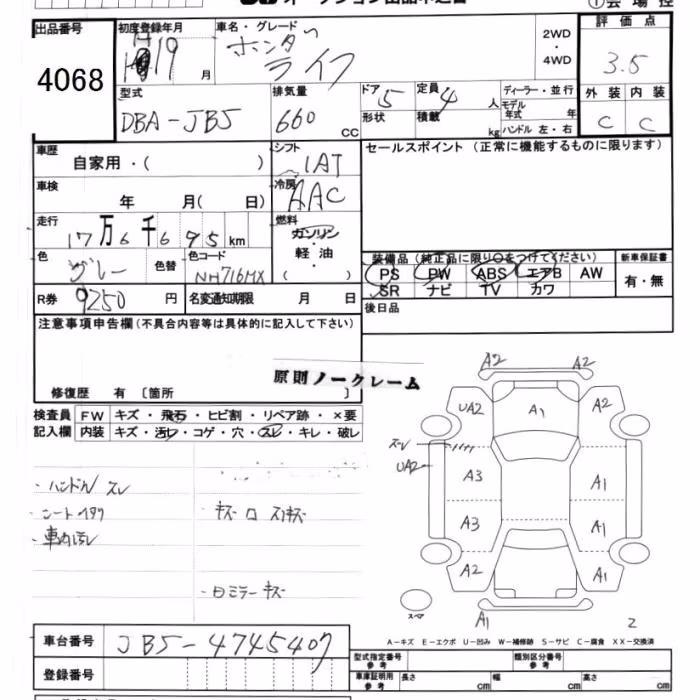 出品番号 初度登録年月 車名・グレード 2WD・4WD 評価点
4068 19 月 ホンダ ライフ 3.5
型式 排気量 ドア 5 定員 4 人 ディーラー・並行 外装 内装
DBA-JB5 660 cc 形状 積載 kg モデル年式 年 ハンドル 左・右 C C
車歴 自家用・( ) シフト IAT セールスポイント (正常に機能するものに限ります)
車検 年 月( 日) 冷房 AAC
走行 17万6千695km 燃料 ガソリン・軽油・( )
色 グレー 色替 色コード NH716MX 装備品(純正品に限り○をつけてください) 新車保証書
PS PW ABS エアB AW 有・無
SR ナビ TV カワ
R券 9250 円 名変通知期限 月 日 後日品
注意事項申告欄(不具合内容等は具体的に記入して下さい)
原則ノークレーム
修復歴 有 〔箇所 〕
検査員 FW キズ・飛石・ヒビ割・リペア跡・×要
記入欄 内装 キズ・汚レ・コゲ・穴・スレ・キレ・破レ
・ハンドル スレ
・シートヘタリ
・キズ
・ロミラーキズ
A2 A2
UA2 A1 A2
スレ
UA2
A3 A1
A3 A1
A2 A1
スペア A1 2
A-キズ E-エクボ U-凹み W-補修跡 S-サビ C-腐食 XX-交換済
車台番号 JB5-4745407
登録番号
型式指定番号 参考 類別区分番号 参考
車庫証明用 参考 長さ cm 幅 cm 高さ cm